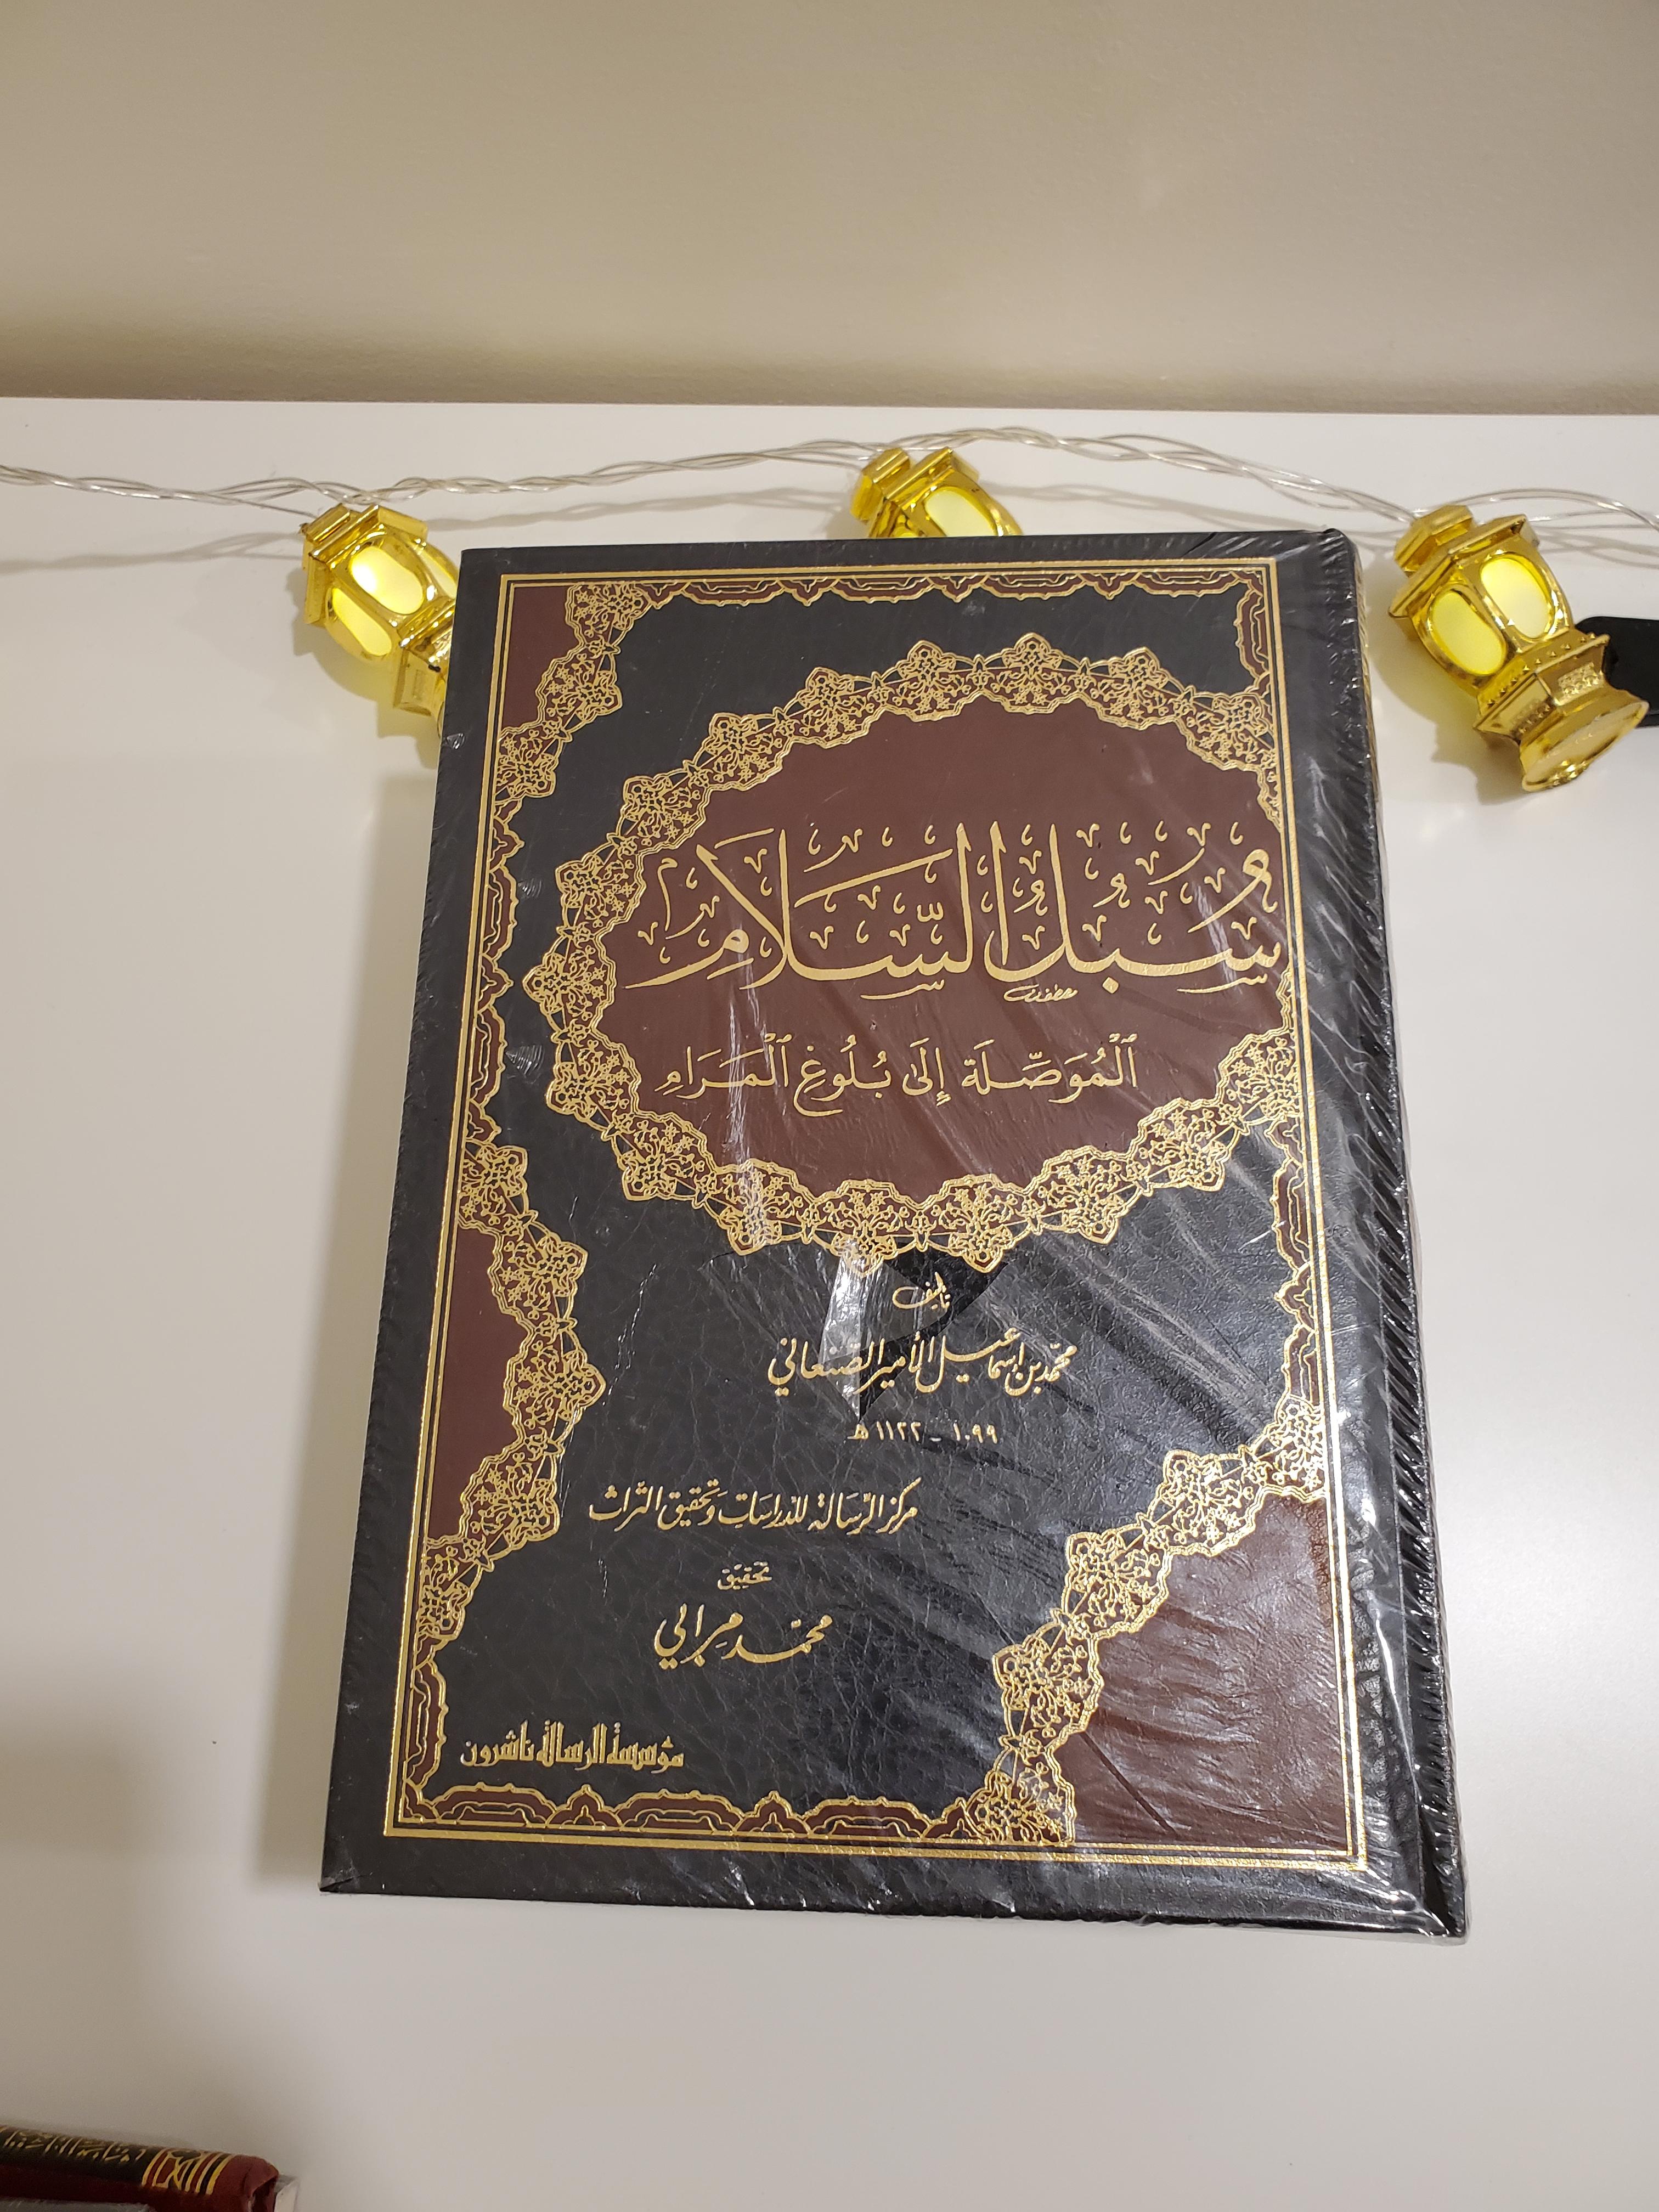 سُبُلُ السَّلَامِ
ٱلْمُوَصِّلَة إِلَى بُلُوغِ ٱلْمَرَامِ
تأليف
محمّد بن إسماعيل الأمير الصنعاني
١٠٩٩ - ١١٢٢ هـ
مركز الرّسالة للدّراسَاتِ وَتحقيق التّراث
تحقيق
محمّد مِرابي
مؤسسة الرسالة ناشرون